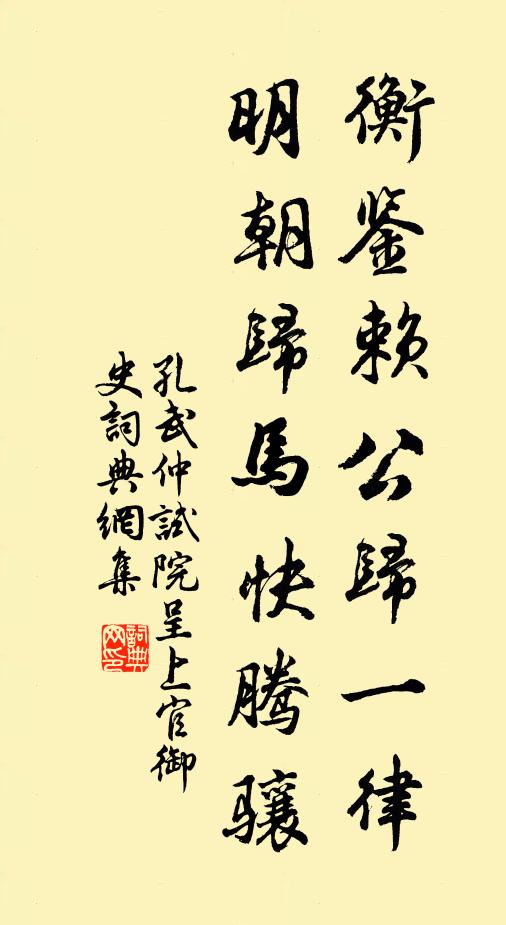 衡鉴赖公歸一律
明朝歸馬快腾骧
孔武仲試院呈上官御
史詞典網集
詞典
网印